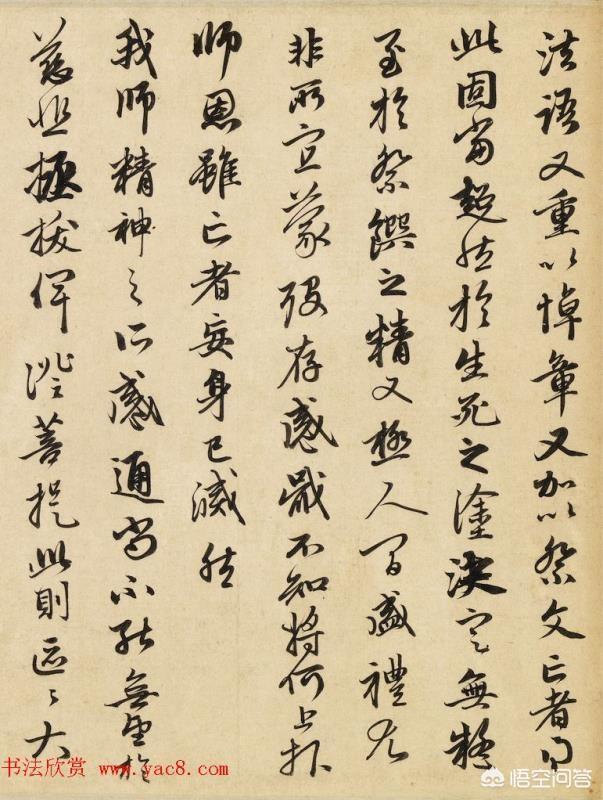 法語又重以悼章又加以祭文亡者得
此固當超然於生死之塗決定無疑
至於祭饌之精又極人間盛禮尤
非所宜蒙歿存感戢不知將何上報
師恩雖亡者妄身已滅然
我師精神之所感通尚不能無望於
慈悲拯拔俾證菩提此則區〻大
书法欣赏 www.yac8.com
悟空问答